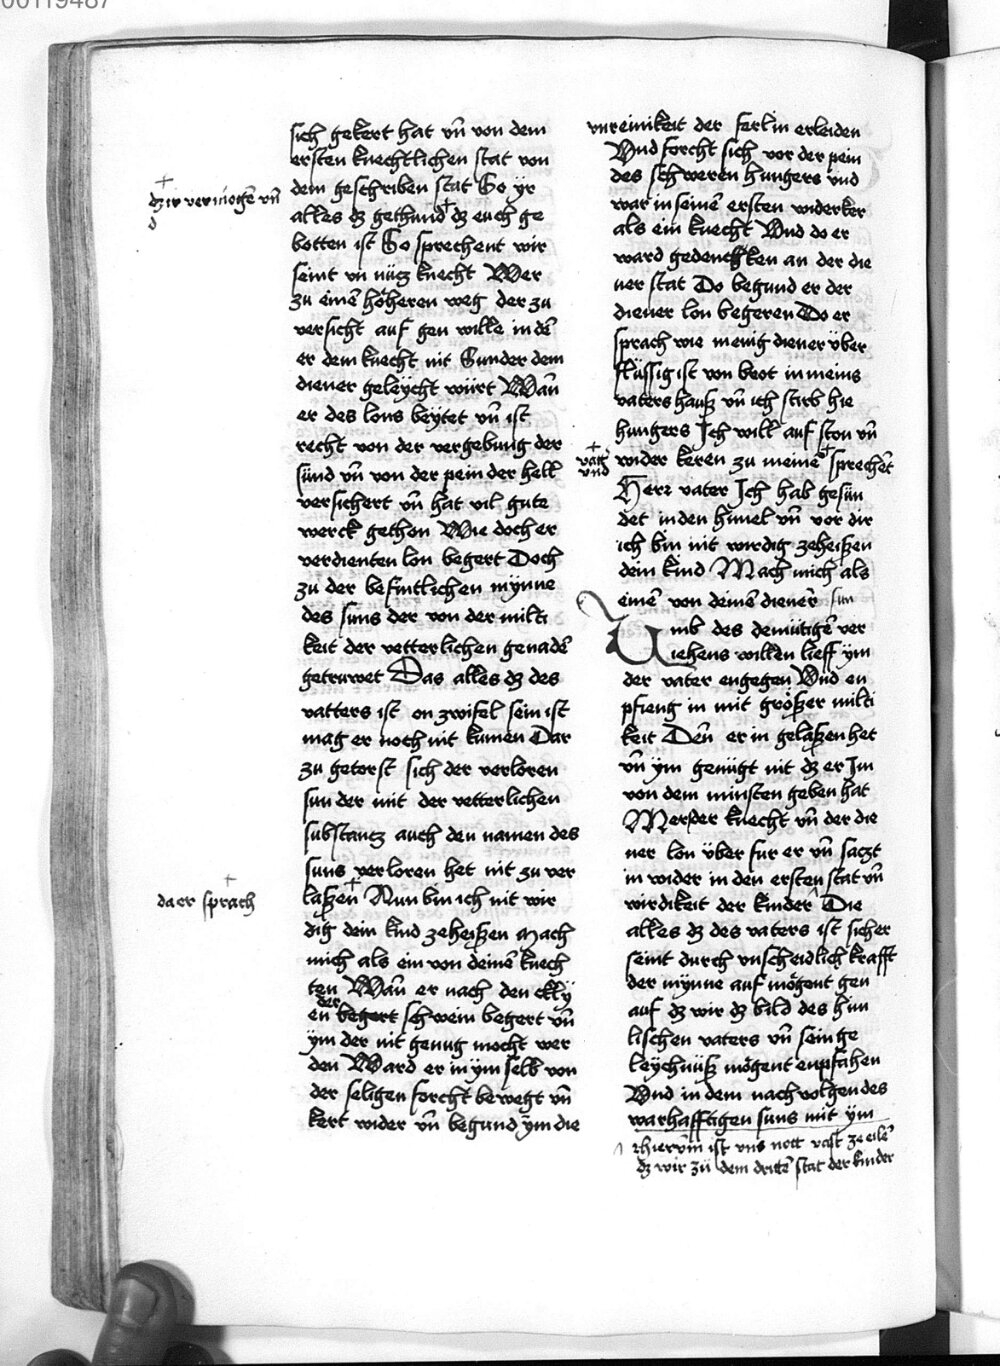 00119487
sich gekert hat vn̄ von dem
ersten knechtlichen stat von
dem geschriben stat So yr
alles dz gethund dz euch ge
botten ist So sprechent wir
seint vn nücz knecht Wer
zu einē höheren weg der zu
versicht auf gen wille in dē
er dem knecht nit Sunder dem
diener geleycht würt Wan̄
er des lons beytet vn̄ ist
recht von der vergebung der
sünd vn̄ von der pein der hell
versichert vn̄ hat vil gute
werck gethon Wie doch er
verdienten lon begert Doch
zu der befintlichen mynne
des suns der von der milti
keit der vetterlichen genadē
getruwet Das alles dz des
vatters ist on zwifel sein ist
mag er noch nit kumen Dar
zu getorst sich der verloren
sun der mit der vetterlichen
substancz auch den namen des
suns verloren het nit zu ver
laßen Nun bin ich nit wir
dig dein kind zeheißen mach
mich als ein von deinē knech
ten Wan̄ er nach den
der
en begert schwein begert vn̄
ym der nit genug mocht wer
den Ward er in ym selb von
der seligen forcht bewegt vn̄
kert wider vn̄ begund ym die
dz ir vermögē vn̄
d
da er sprach
vnreinikeit der ferlin erleiden
Vnd forcht sich vor der pein
des schweren hungers vnd
war in seinē ersten widerker
als ein knecht Vnd do er
ward gedencken an der die
ner stat Do begund er der
diener lon begeren Do er
sprach wie menig diener über
flüssig ist von brot in meins
vaters hauß vn̄ ich stirb hie
hungers Ich will auf ston vn̄
wider keren zu meinē sprechē
vatt
vnd
Herr vater Ich hab gesün
det in den himel vn̄ vor dir
ich bin nit wirdig zeheißen
dein kind Mach mich als
einē von deinē dienēr sun
Vmb des demütigē ver
iehens willen lieff ym
der vater engegen Vnd en
pfieng in mit größer milti
keit Den̄ er in gelaßen het
vn̄ ym genügt nit dz er Im
von dem minsten geben hat
Mer der knecht vn̄ der die
ner lon über fur er vn̄ saczt
in wider in den ersten stat vn̄
wirdikeit der kinder Die
alles dz des vaters ist sicher
seint durch vnscheidlich krafft
der mynne auf mögent gen
auf dz wir dz bild des him
lischen vaters vn̄ sein ge
leychnüß mögent enpfahen
Vnd in dem nach volgen des
warhafftigen suns mit ym
hierūm ist vns nott vast ze eilē
dz wir zü dem drittē stat der kinder